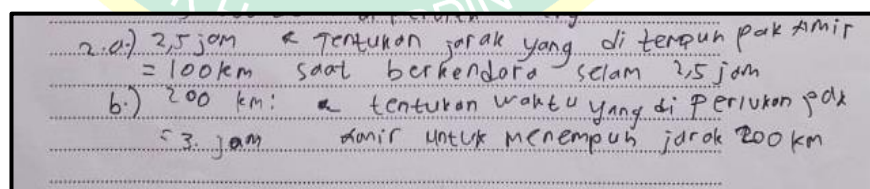 2.a.) 2,5 jam & Tentukan jarak yang di tempuh pak Amir
= 100km saat berkendara selam 2,5 jam
b.) 200 km: & tentukan waktu yang di perlukan pak
= 3. jam Amir untuk menempuh jarak 200 km